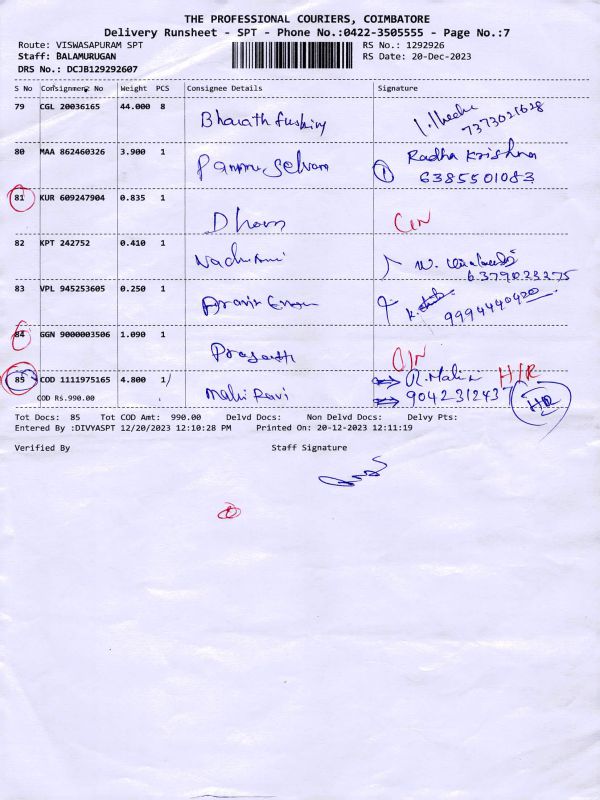 THE PROFESSIONAL COURIERS, COIMBATORE
Delivery Runsheet - SPT - Phone No.:0422-3505555 - Page No.:7
Route: VISWASAPURAM SPT RS No.: 1292926
Staff: BALAMURUGAN RS Date: 20-Dec-2023
DRS No.: DCJB129292607
S No Consignment No Weight PCS Consignee Details Signature
79 CGL 20036165 44.000 8
Bharath 7373021628
80 MAA 862460326 3.900 1 Radha Krishna
Selvam 1 6385501083
81 KUR 609247904 0.835 1
82 KPT 242752 0.410 1
6379023275
83 VPL 945253605 0.250 1
9994440420
84 GGN 9000003506 1.090 1
Prasanth
85 COD 1111975165 4.800 1/ R. Malini H/R
COD Rs.990.00 Mahi Ravi 9042312437 HR
Tot Docs: 85 Tot COD Amt: 990.00 Delvd Docs: Non Delvd Docs: Delvy Pts:
Entered By :DIVYASPT 12/20/2023 12:10:28 PM Printed On: 20-12-2023 12:11:19
Verified By Staff Signature